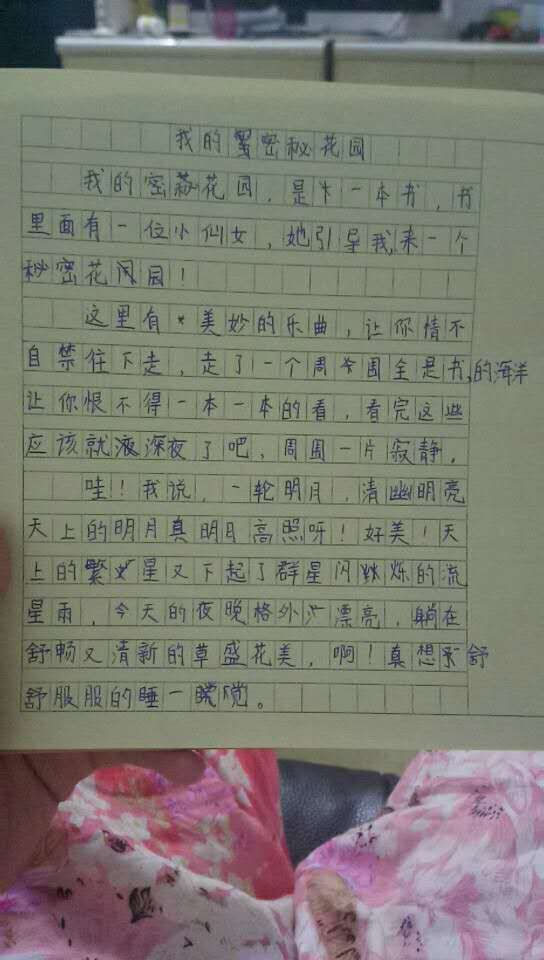 我的密秘花园
我的密秘花园，是一本书，书
里面有一位小仙女，她引导我来一个
秘密花园！
这里有美妙的乐曲，让你情不
自禁住下走，走了一个周围全是书的海洋
让你恨不得一本一本的看，看完这些
应该就深夜了吧，周围一片寂静。
哇！我说，一轮明月，清幽明亮
天上的明月真明月高照呀！好美！天
上的繁星又下起了群星闪烁的流
星雨，今天的夜晚格外漂亮，躺在
舒畅又清新的草盛花美，啊！真想舒
舒服服的睡一觉。